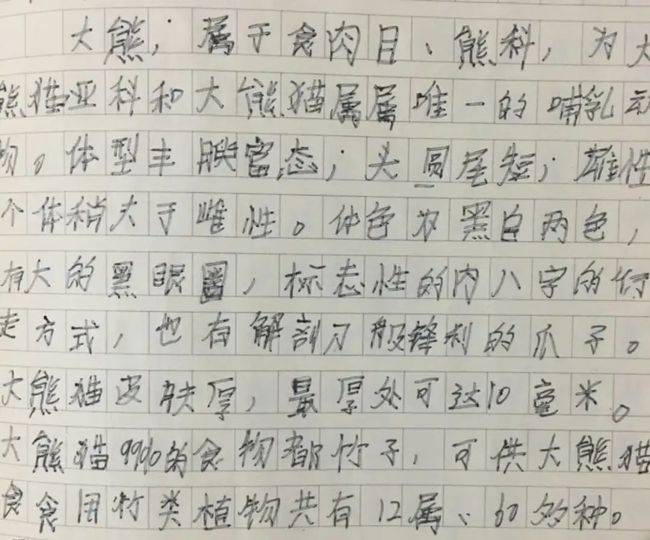 大熊，属于食肉目、熊科，为大
熊猫亚科和大熊猫属属唯一的哺乳动
物。体型丰腴富态，头圆尾短，雄性
个体稍大于雌性。体色为黑白两色，
有大的黑眼圈，标志性的内八字的行
走方式，也有解剖刀般锋利的爪子。
大熊猫皮肤厚，最厚处可达10毫米。
大熊猫99%的食物都竹子，可供大熊猫
食食用竹类植物共有12属、60多种。